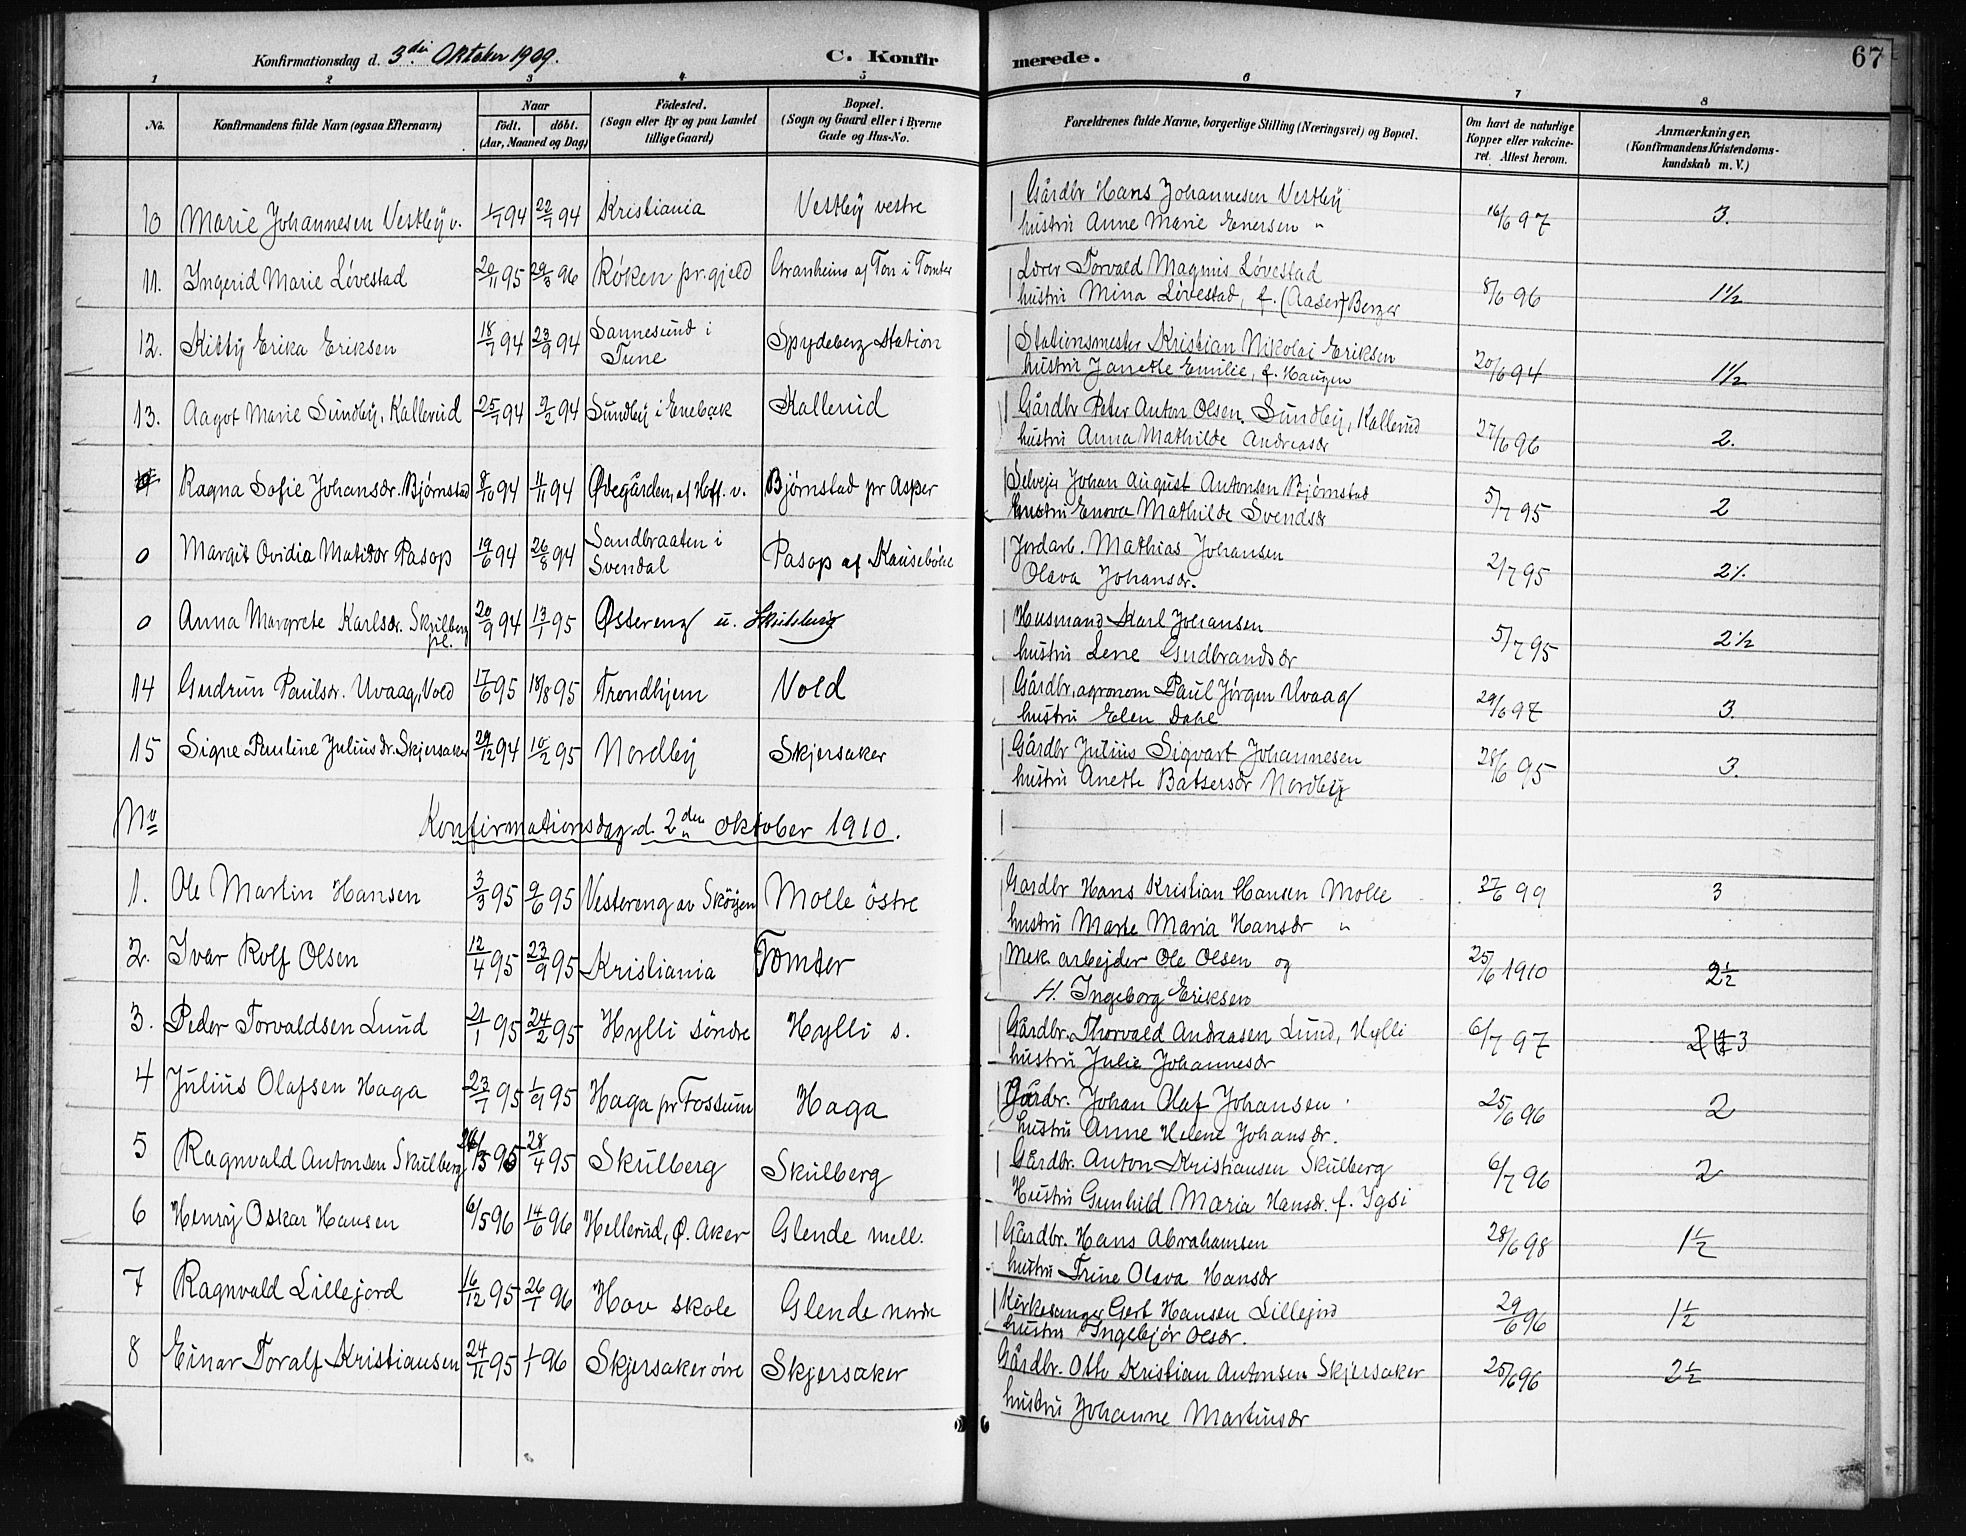 67
Konfirmationsdag d. 3die Oktober 1909. C. Konfirmerede.
1 2 3 4 5 6 7 8
No. Konfirmandens fulde Navn (ogsaa Efternavn) Naar födt. döbt. (Aar, Maaned og Dag) Födested. (Sogn eller By og paa Landet tillige Gaard) Bopæl. (Sogn og Gaard eller i Byerne Gade og Hus-No. Forældrenes fulde Navne, borgerlige Stilling (Næringsvei) og Bopæl. Om havt de naturlige Kopper eller vakcineret. Attest herom. Anmærkninger. (Konfirmandens Kristendomskundskab m. V.)
10 Marie Johannesen Vestby v. 1/7 94 22/7 94 Kristiania Vestby vestre Gårdbr Hans Johannesen Vestby
hustru Anne Marie Enersen " 16/6 97 3.
11. Ingerid Marie Lövestad 20/11 95 29/3 96 Röken pr.gjeld Granheim af Ton i Tomter Lærer Torvald Magnus Lövestad
hustru Mina Lövestad, f. (Aaser) Berger 8/6 96 1½
12. Kitty Erika Eriksen 18/7 94 23/9 94 Sannesund i Tune Spydeberg Station Stationsmester Kristian Nikolai Eriksen
hustru Janette Emilie, f. Haugen 20/6 94 1½
13. Aagot Marie Sundby, Kallerud 25/7 94 9/2 94 Sundby i Enebæk Kallerud Gårdbr Peter Anton Olsen Sundby, Kallerud
hustru Anna Mathilde Andreasdr 27/6 96 2.
Ragna Sofie Johansdr. Bjørnstad 8/10 94 4/11 94 Ødegården, af Hoff. v. Bjørnstad pr Asper Selveier Johan August Antonsen Bjørnstad
hustru Enova Mathilde Svendsdr 5/7 95 2
0 Margit Ovidia Matisdr Pasop 19/6 94 26/8 94 Sandbraaten i Svendal Pasop af Kausebøle Jordarb. Mathias Johansen
Olava Johansdr. 2/7 95 2½
0 Anna Margrete Karlsdr. Skulberg pl. 20/9 94 13/1 95 Østereng u. Skulberg Husmand Karl Johansen
hustru Lene Gudbrandsdr 5/7 95 2½
14 Gudrun Paulsdr. Uvaag, Vold 17/6 95 18/8 95 Trondhjem Vold Gårdbr, agronom Paul Jörgen Uvaag
hustru Elen Dahl 29/6 97 3.
15 Signe Pauline Juliusdr. Skjersaker 29/12 94 10/2 95 Nordby Skjersaker Gårdbr Julius Sigvart Johannesen
hustru Anette Batsersdr Nordby 28/6 95 3.
No Konfirmationsdag d. 2den oktober 1910.
1. Ole Martin Hansen 3/3 95 9/6 95 Vestereng av Sköyen Molle östre Gardbr Hans Kristian Hansen Molle
hustru Marte Maria Hansdr " 27/6 99 3
2. Ivar Rolf Olsen 12/4 95 23/9 95 Kristiania Tomter Mek. arbejder Ole Olsen og
H. Ingeborg Eriksen 25/6 1910 2½
3. Peder Torvaldsen Lund 21/1 95 24/2 95 Hylli söndre Hylli s. Gårdbr. Thorvald Andreasen Lund, Hylli
hustru Julie Johannesdr 6/7 97 3
4 Julius Olafsen Haga 23/7 95 1/9 95 Haga pr Fossum Haga Gårdbr. Johan Olaf Johansen
hustru Anne Helene Johansdr. 25/6 96 2
5 Ragnvald Antonsen Skulberg 95 28/4 95 Skulberg Skulberg Gårdbr. Anton Kristiansen Skulberg
Hustru Gunhild Maria Hansdr. f. Ygsi 6/7 96 2
6 Henry Oskar Hansen 6/5 96 14/6 96 Hellerud, Ø. Aker Glende mell. Gårdbr. Hans Abrahamsen
hustru Trine Olava Hansdr 28/6 98 1½
7 Ragnvald Lillejord 16/12 95 26/1 96 Hov skole Glende nordre Kirkesanger Gert Hansen Lillejord
hustru Ingebjør Olsdr. 29/6 96 1½
8 Einar Toralf Kristiansen 24/11 95 1/1 96 Skjersaker övre Skjersaker Gårdbr. Otto Kristian Antonsen Skjersaker
hustru Johanne Martinsdr 25/6 96 2½